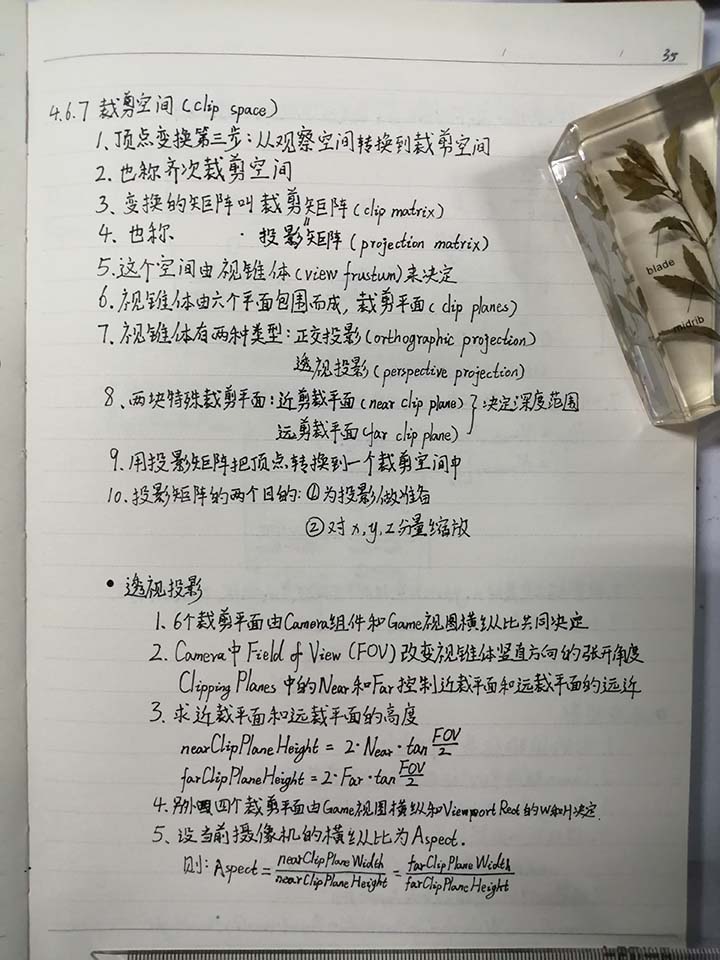 35
4.6.7 裁剪空间(clip space)
1、顶点变换第三步:从观察空间转换到裁剪空间
2、也称齐次裁剪空间
3、变换的矩阵叫裁剪矩阵(clip matrix)
4、也称 · 投影矩阵(projection matrix)
5、这个空间由视锥体(view frustum)来决定
6、视锥体由六个平面包围而成,裁剪平面(clip planes)
7、视锥体有两种类型:正交投影(orthographic projection)
透视投影(perspective projection)
8、两块特殊裁剪平面:近剪裁平面(near clip plane) } 决定深度范围
远剪裁平面(far clip plane)
9、用投影矩阵把顶点转换到一个裁剪空间中
10、投影矩阵的两个目的:①为投影做准备
②对x,y,z分量缩放
• 透视投影
1、6个裁剪平面由Camera组件和Game视图横纵比共同决定
2、Camera中Field of View(FOV)改变视锥体竖直方向的张开角度
Clipping Planes中的Near和Far控制近裁平面和远裁平面的远近
3、求近裁平面和远裁平面的高度
nearClipPlaneHeight = 2·Near·tan FOV/2
farClipPlaneHeight = 2·Far·tan FOV/2
4、另外四个裁剪平面由Game视图横纵和Viewport Rect的W和H决定.
5、设当前摄像机的横纵比为Aspect.
则: Aspect = nearClipPlaneWidth/nearClipPlaneHeight = farClipPlaneWidth/farClipPlaneHeight
blade
midrib